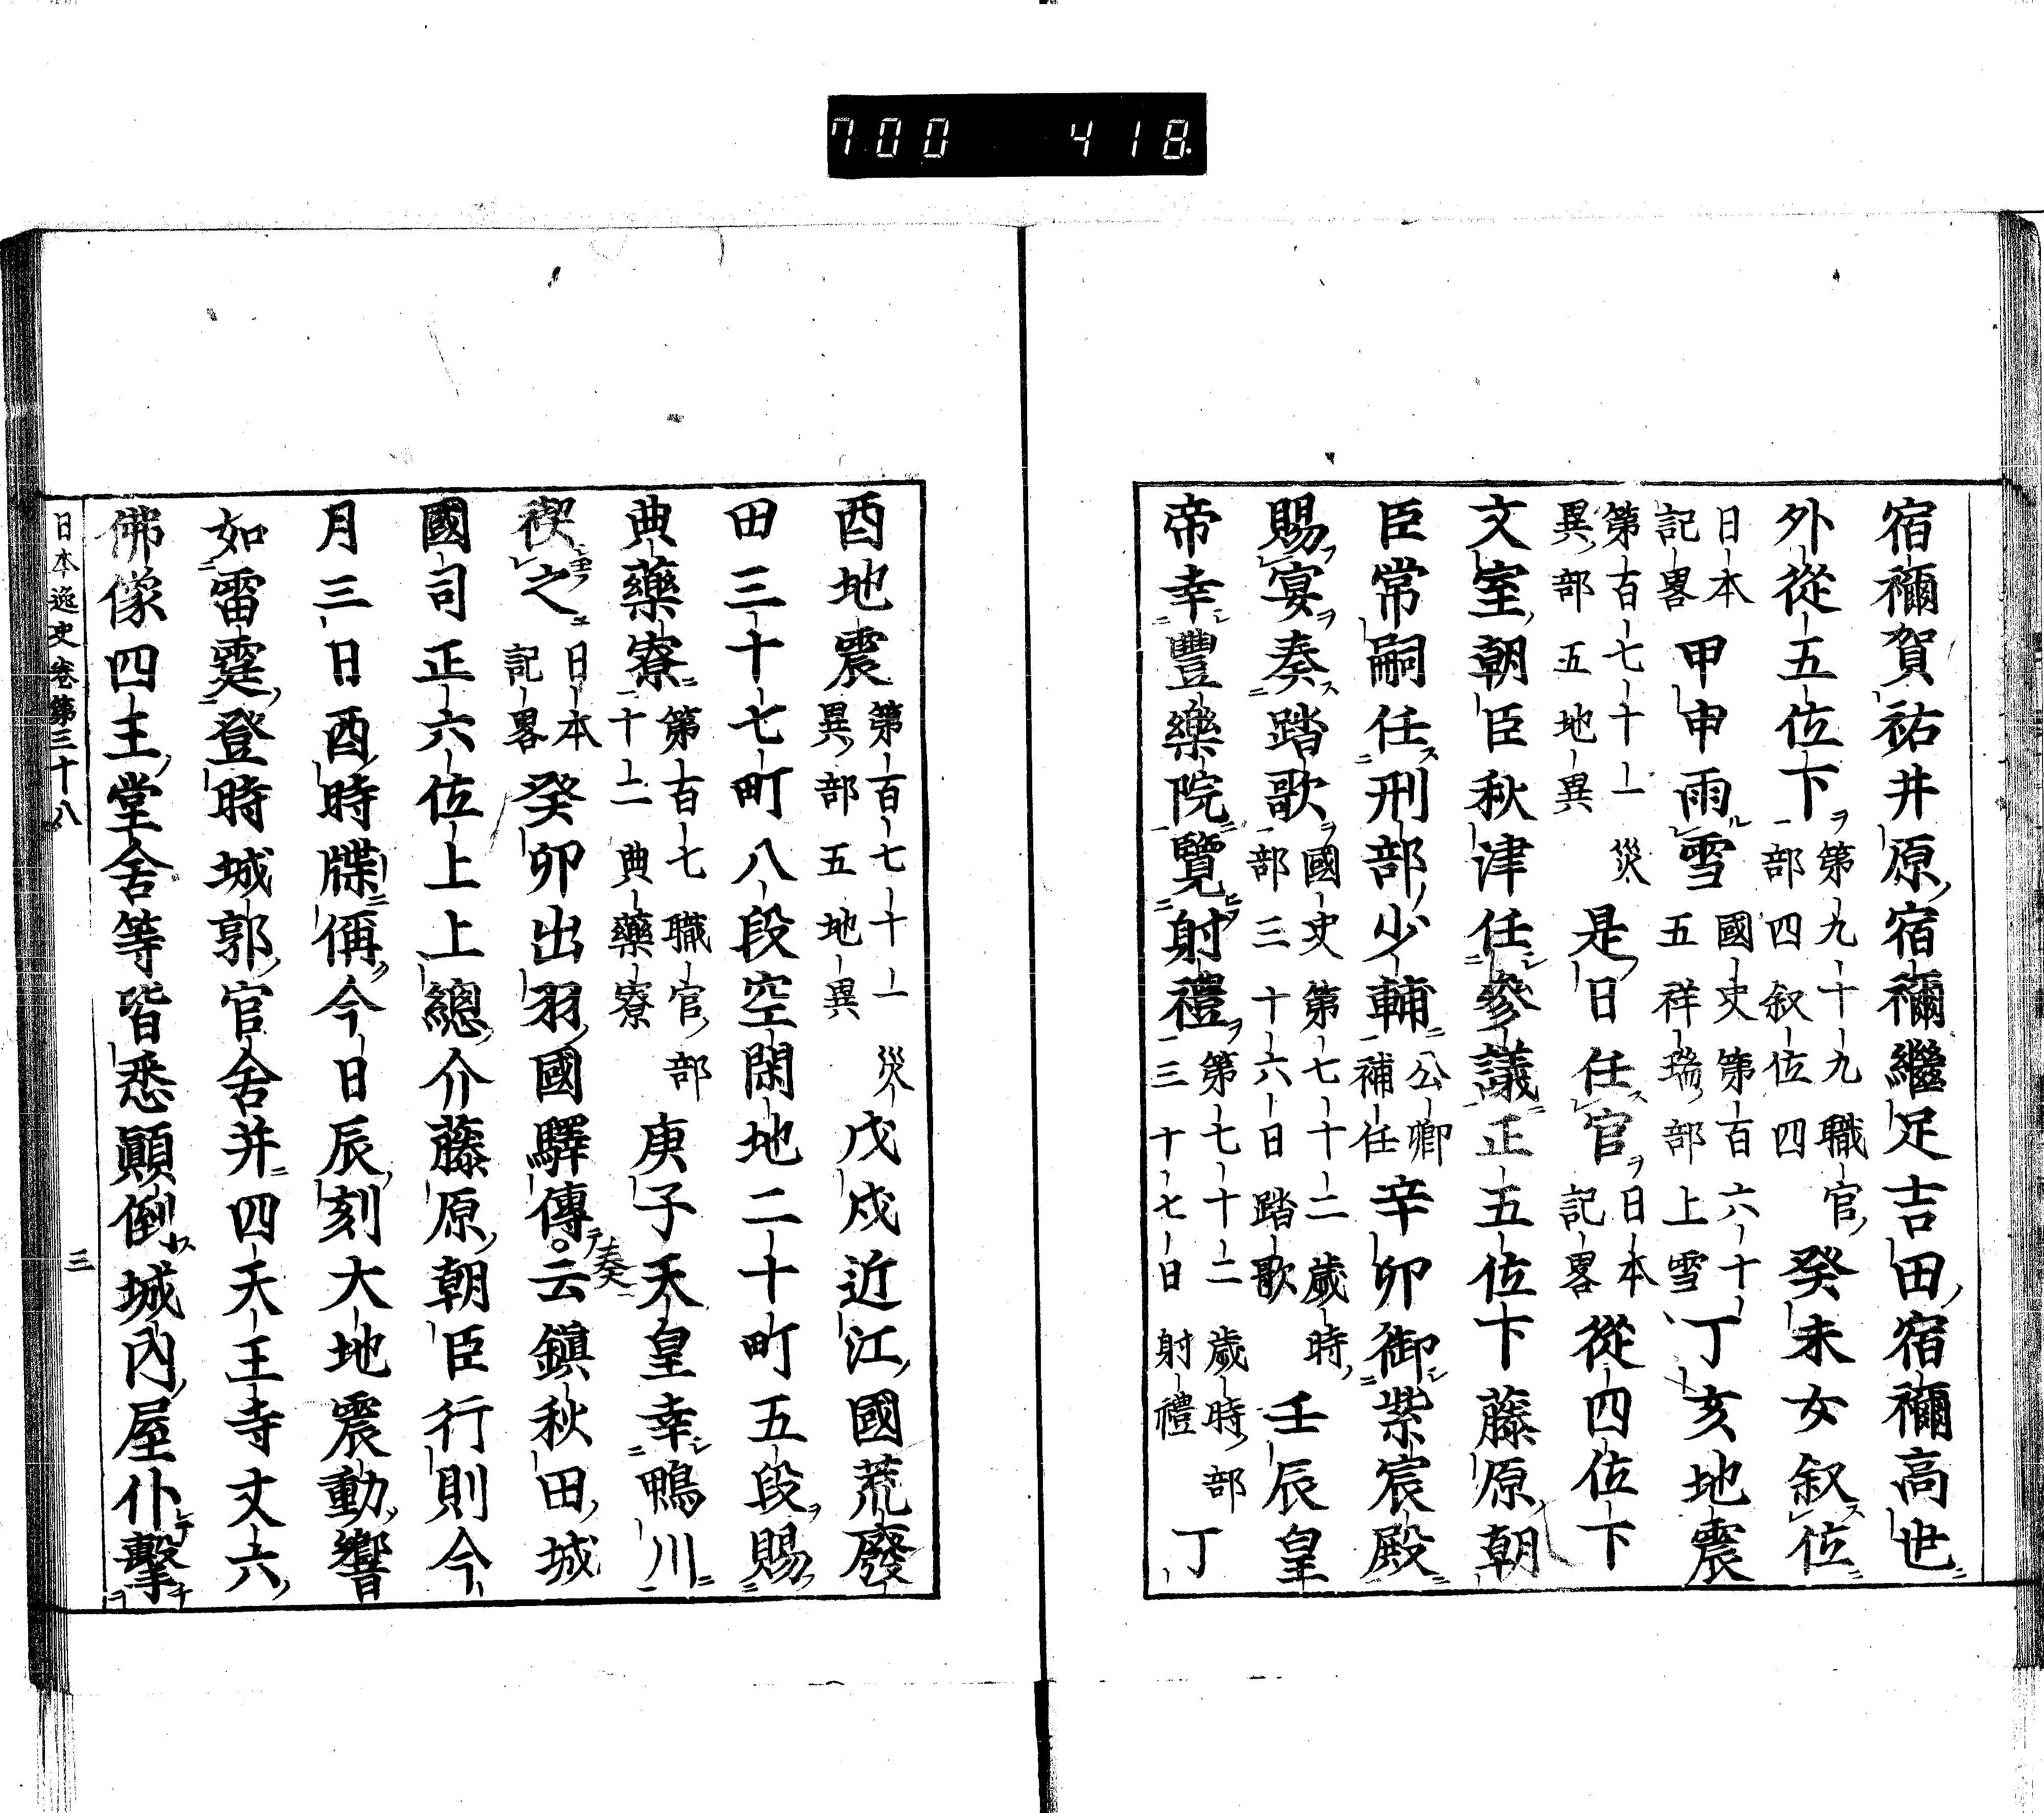 700 418
宿禰賀祐井原宿禰繼足吉田宿禰高世
外從五位下第九十九職官部四叙位四癸未女叙位
日本記畧甲申雨雪國史第百六十五祥瑞部上雪丁亥地震
第百七十一災異部五地異是日任官日本記畧從四位下
文室朝臣秋津任參議正五位下藤原朝
臣常嗣任刑部少輔公卿補任辛卯御紫宸殿
賜宴奏踏歌國史第七十二歲時部三十六日踏歌壬辰皇
帝幸豐樂院覽射禮第七十二歲時部三十七日射禮丁
酉地震第百七十一災異部五地異戊戌近江國荒廢
田三十七町八段空閑地二十町五段賜
典藥寮第百七職官部十二典藥寮庚子天皇幸鴨川
禊之日本記畧癸卯出羽國驛傳奏云鎭秋田城
國司正六位上上總介藤原朝臣行則今
月三日酉時牒偁今日辰刻大地震動響
如雷霆登時城郭官舍并四天王寺丈六
佛像四王堂舍等皆悉顚倒城內屋仆擊
日本逸史卷第三十八 三